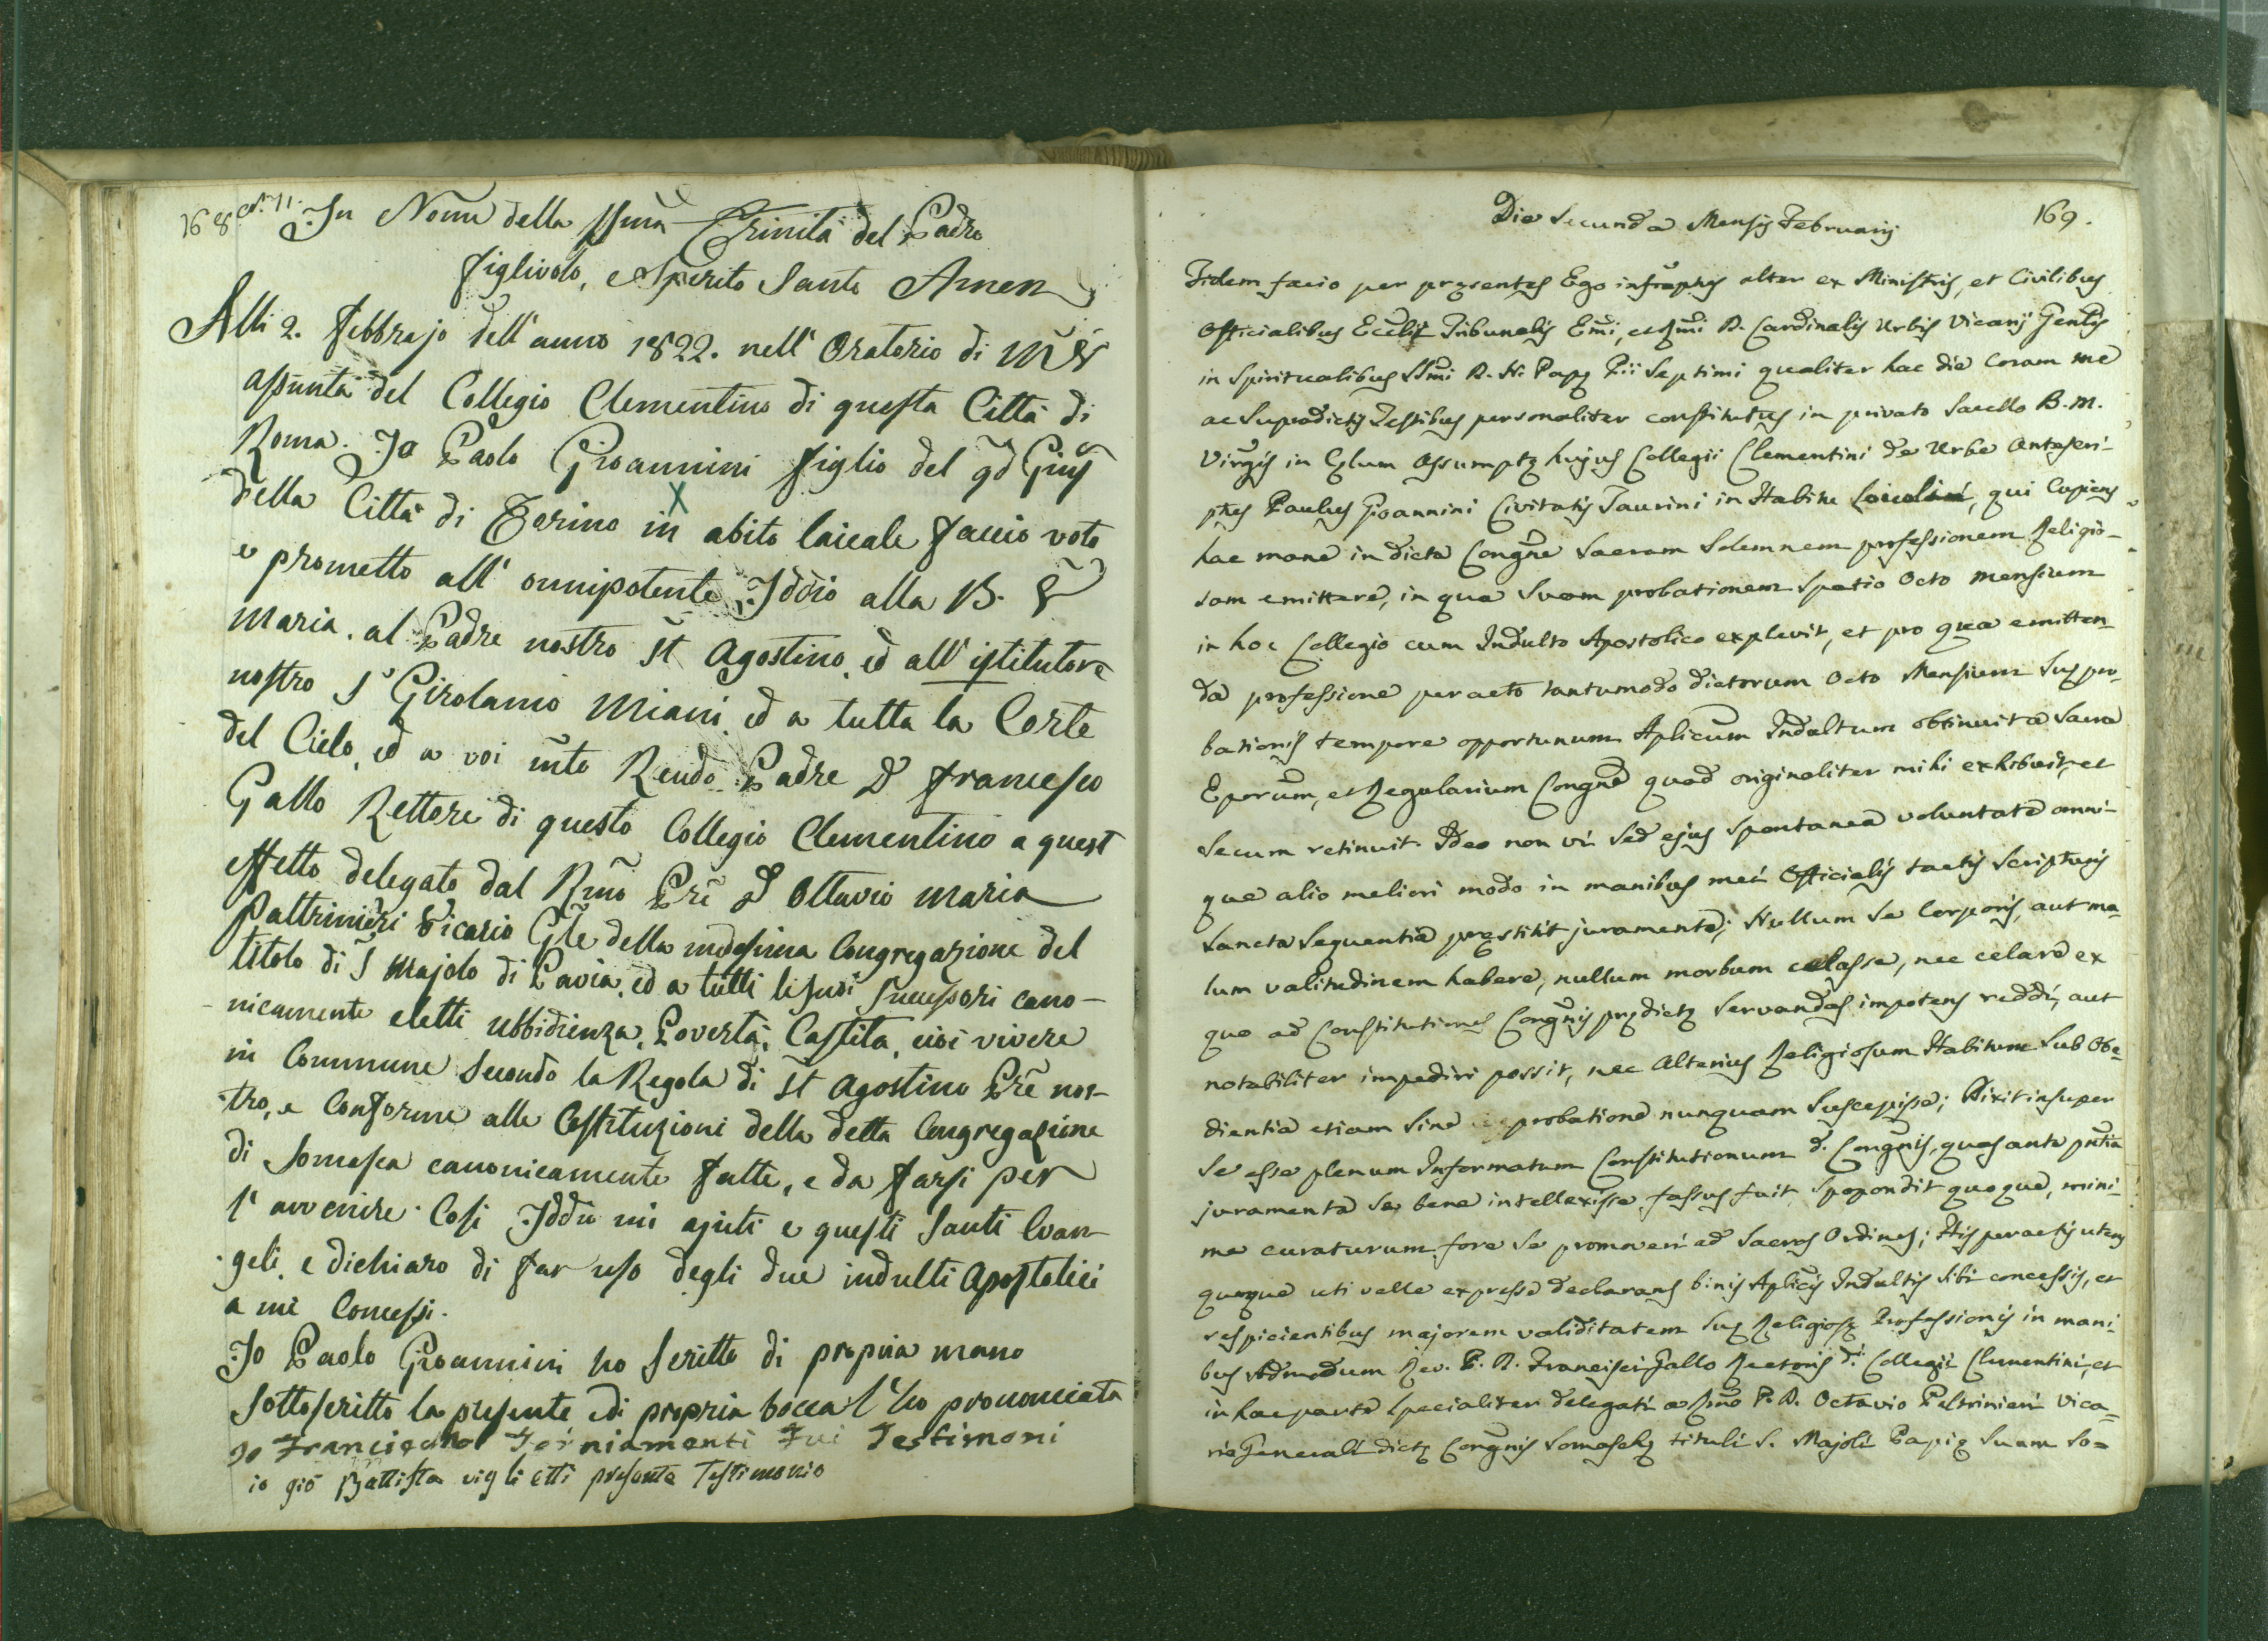 168
In Nome della SSma Trinità del Padre
figlivolo, e Spirito Santo Amen
Alli 2. febbrajo dell'anno 1822. nell' Oratorio di
assunta del Collegio Clementino di questa Città di
Roma. Io Paolo Gioannini figlio del qd Giuse
della Città di Torino in abito laicale faccio voto
e prometto all' onnipotente Iddio alla B. V
Maria. al Padre nostro St Agostino, ed all' istitutore
nostro S Girolamo Miani, ed a tutta la Corte
del Cielo, ed a voi mto Rendo Padre D francesco
Gallo Rettore di questo Collegio Clementino a quest
effetto delegato dal Rmo Pre D Ottavio Maria
Paltrinieri Vicario Gle della medesima Congregazione del
titolo di S Majolo di Pavia, ed a tutti li suoi Successori cano-
nicamente eletti ubbidienza, Povertà, Castita, cioè vivere
in Commune Secondo la Regola di St Agostino Pre nos-
tro, e Conforme alle Costituzioni della detta Congregazione
di Somasca canonicamente fatte, e da farsi per
l' avvenire. Cosi Iddio mi ajuti e questi Santi Evan-
geli, e dichiaro di far uso degli due indulti Apostolici
a me Concessi.
Io Paolo Gioannini ho Scritto di propria mano
Sottoscritto la presente e di propria bocca l' ho prononciata
Io Francischo Forniamenti Fui Testimoni
io gio Battista viglietti presente Testimonio
169.
Die Secunda Mensis Februarij
Fidem facio per præsentes Ego infraptus alter ex Ministris, et Civilibus
Officialibus Ecclis Tribunalis Emi, et Rmi D. Cardinalis Urbis Vicarij Genlis
in Spiritualibus SSmi D. N. Papę Pii Septimi qualiter hac die Coram me
ac Supradictis Testibus personaliter constitutus in privato Sacello B. M.
Virgis in Cęlum Assumptę hujus Collegii Clementini de Urbe Antascri-
ptus Paulus Gioannini Civitatis Taurini in Habitu Laicali, qui Cupiens
hac mane in dicta Congne Sacram Solemnem professionem Religio-
sam emittere, in qua Suam probationem Spatio Octo Mensium
in hoc Collegio cum Indulto Apostolico explevit, et pro qua emitten-
da professione peracto tantumodo dictorum Octo Mensium Suę pro-
bationis tempore opportunum Aplicum Indultum obtinuit a Sacra
Eporum, et Regularium Congne quod originaliter mihi exhibuit, et
Secum retinuit Ideo non vi Sed ejus Spontanea voluntate omni-
que alio meliori modo in manibus mei Officialis tactis Scripturis
Sancta Sequentia pręstitit juramenta; Nullum Se Corporis, aut ma-
lam valitudinem habere, nullum morbum celasse, nec celare ex
quo ad Constitutiones Congnis prędictę Servandas impotens reddi, aut
notabiliter impediri possit, nec Alterius Religiosum Habitum Sub Obe-
dientia etiam Sine probatione nunquam Suscepisse; Dixit insuper
Se esse plenum Informatum Constitutionum d. Congnis, quas ante pntia
juramenta Se bene intellexisse fassus fuit, Spopondit quoque, mini-
me curaturum fore Se promoveri ad Sacros Ordines; His peractis utens
quoque uti velle expresse declarans binis Aplicis Indultis Sibi concessis, et
respicientibus majorem validitatem Suę Religiosę Professionis in mani-
bus Admodum Rev. P. D. Francisci Gallo Rectoris di Collegii Clementini, et
in hac parte Specialiter delegati a Rmo P. D. Octavio Paltrinieri Vica-
rio Generali dictę Congnis Somaschę tituli S. Majoli Papię Suam So-